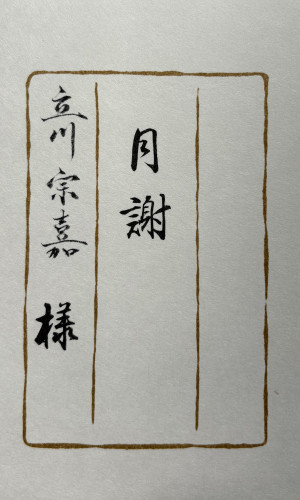 月謝
立川宗嘉様